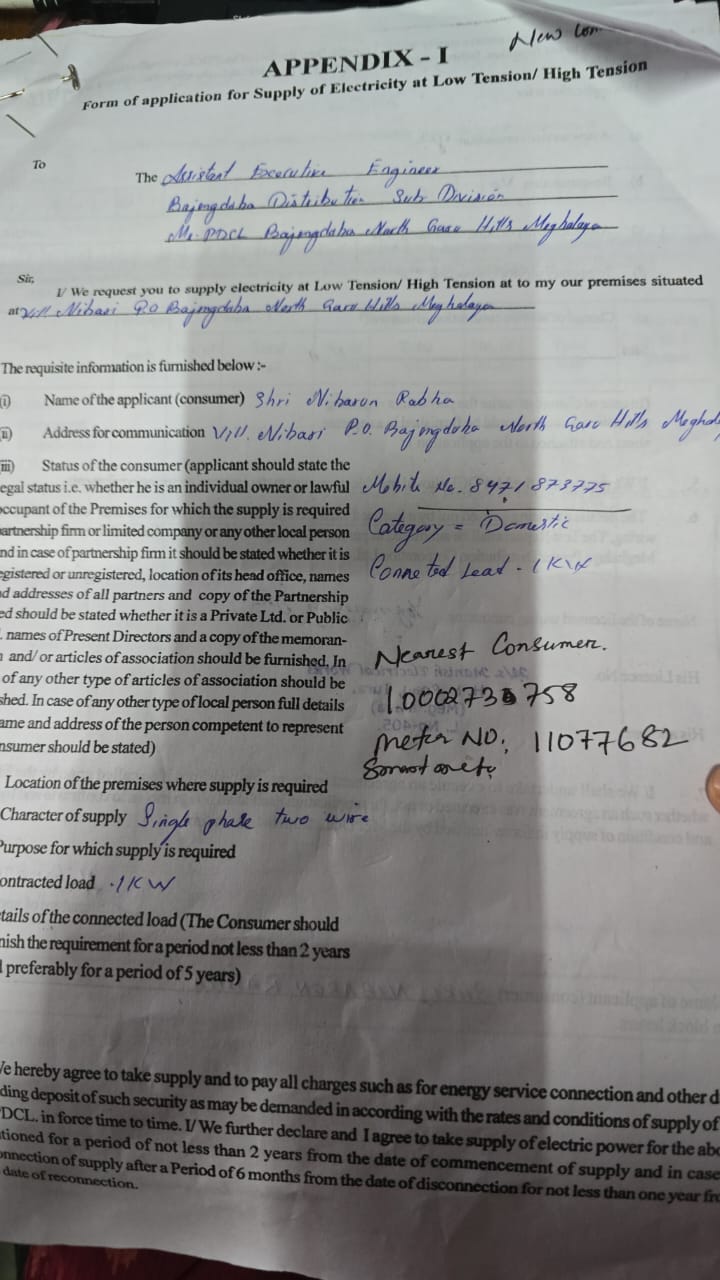 New Con
APPENDIX - I
Form of application for Supply of Electricity at Low Tension/ High Tension
To
The Assistant Executive Engineer
Bajengdoba Distribution Sub Division
Me PDCL Bajengdoba North Garo Hills Meghalaya
Sir,
I/ We request you to supply electricity at Low Tension/ High Tension at to my our premises situated
at Vill Nibari P.O Bajengdoba North Garo Hills Meghalaya
The requisite information is furnished below :-
(i) Name of the applicant (consumer) Shri Nibaron Rabha
ii) Address for communication Vill. Nibari P.O. Bajengdoba North Garo Hills Megha
iii) Status of the consumer (applicant should state the
egal status i.e. whether he is an individual owner or lawful Mobile No. 8471873775
occupant of the Premises for which the supply is required
artnership firm or limited company or any other local person Category = Domestic
nd in case of partnership firm it should be stated whether it is
egistered or unregistered, location of its head office, names Connected Load - 1 KW
d addresses of all partners and copy of the Partnership
ed should be stated whether it is a Private Ltd. or Public
. names of Present Directors and a copy of the memoran-
and/ or articles of association should be furnished. In Nearest Consumer.
of any other type of articles of association should be
shed. In case of any other type of local person full details
ame and address of the person competent to represent Meter NO. 11077682
nsumer should be stated)
Location of the premises where supply is required
Character of supply Single phase two wire
Purpose for which supply is required
ontracted load 1 KW
tails of the connected load (The Consumer should
nish the requirement for a period not less than 2 years
preferably for a period of 5 years)
e hereby agree to take supply and to pay all charges such as for energy service connection and other d
ding deposit of such security as may be demanded in according with the rates and conditions of supply of
DCL. in force time to time. I/ We further declare and I agree to take supply of electric power for the abo
tioned for a period of not less than 2 years from the date of commencement of supply and in case
onnection of supply after a Period of 6 months from the date of disconnection for not less than one year fro
date of reconnection.